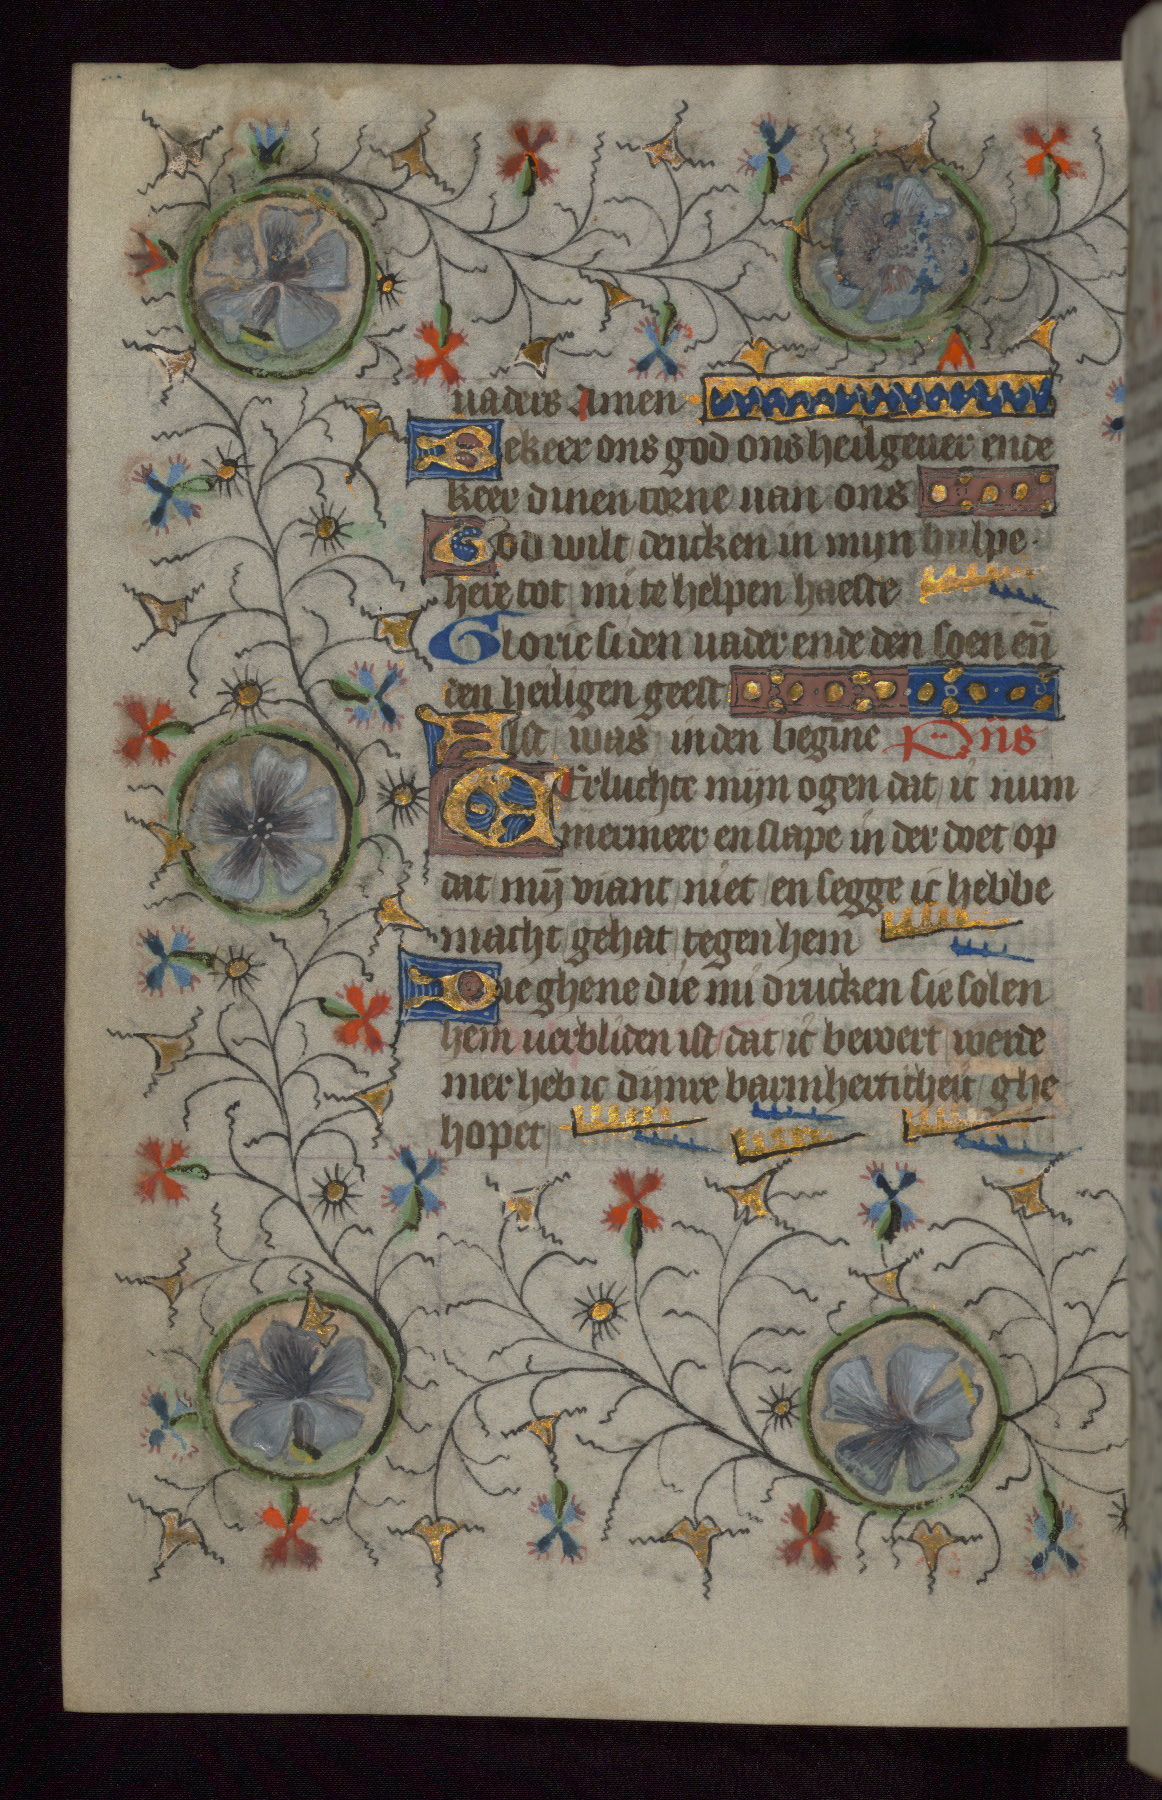 uaders Amen
Bekeer ons god ons heilgeuer ende
keer dinen torne uan ons
God wilt dencken in mijn hulpe
here tot mi te helpen haeste
Glorie si den uader ende den soen en̄
den heiligen geest
Alst was inden begine
Erluchte mijn ogen dat ic num
mermeer en slape in der doet op
dat mijn viant niet en segge ic hebbe
macht gehat tegen hem
Die ghene die mi drucken sie solen
hem uerbliden ist dat ic beroert werde
mer heb ic dijnre barmherticheit ghe
hopet